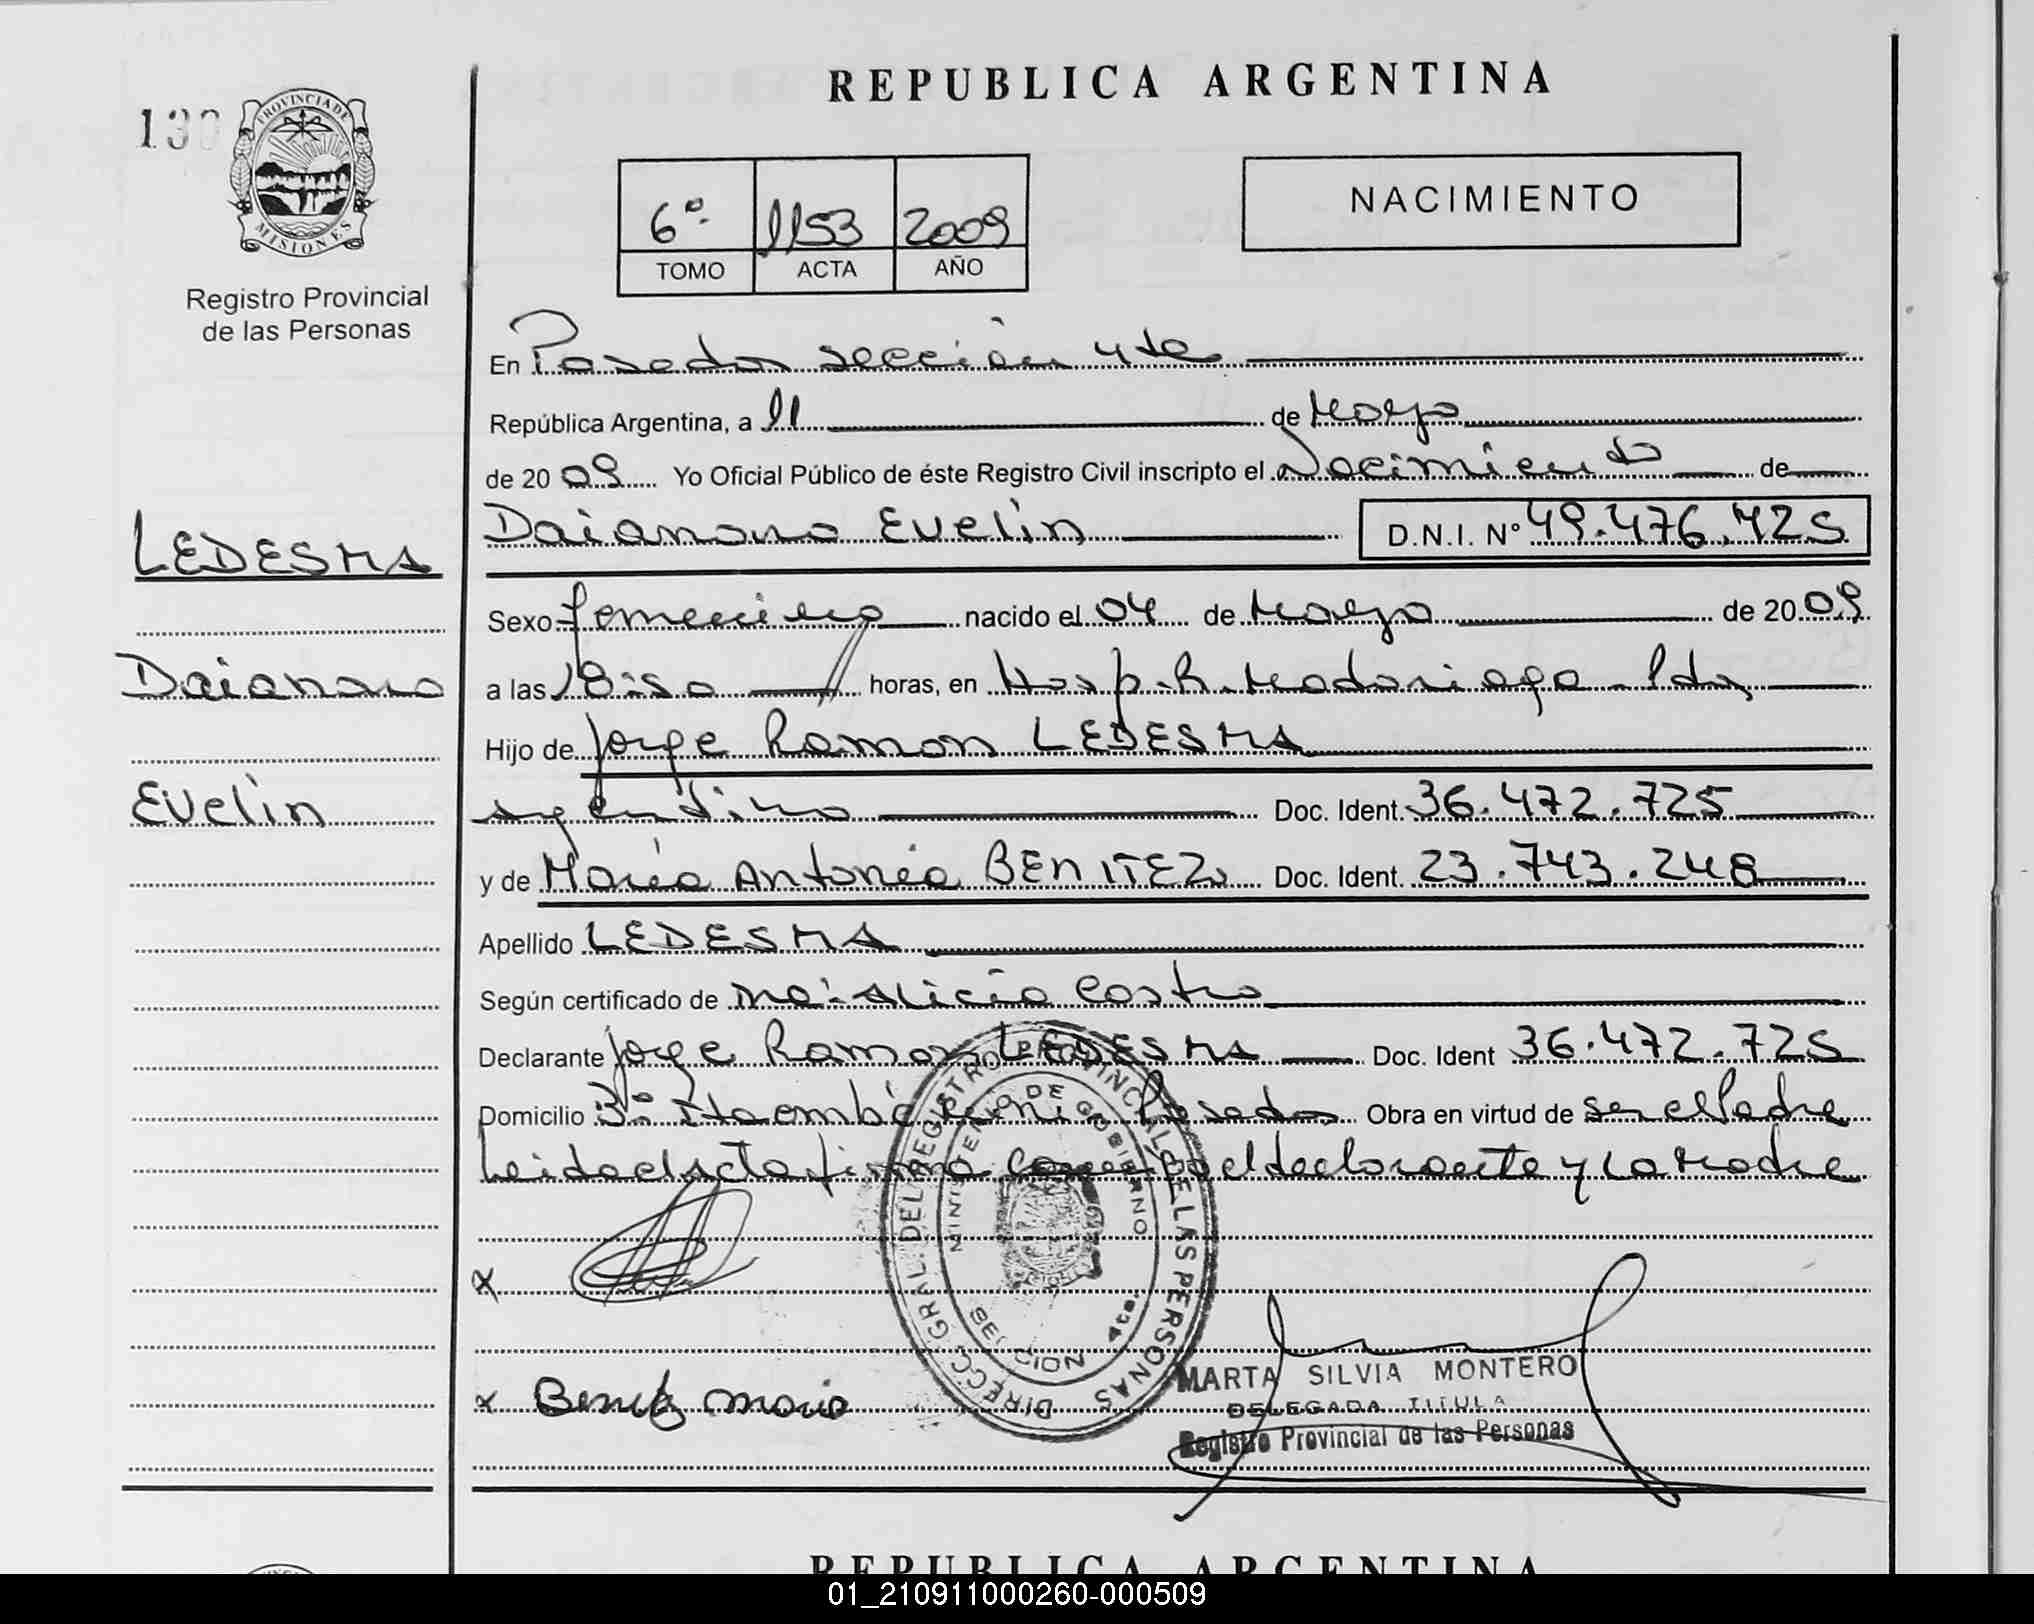 REPUBLICA ARGENTINA
130
PROVINCIA DE
MISIONES
Registro Provincial
de las Personas
6º 1153 2009
TOMO ACTA AÑO
NACIMIENTO
En Posadas sección 4ta
República Argentina, a 11 de Mayo
de 20 09 Yo Oficial Público de éste Registro Civil inscripto el Nacimiento de
LEDESMA
Daianara
Evelin
Daianara Evelin D.N.I. Nº 49.476.425
Sexo femenino nacido el 04 de Mayo de 20 09
a las 18:50 horas, en Hosp. R. Madariaga Pdas
Hijo de Jorge Ramon LEDESMA
argentino Doc. Ident. 36.472.725
y de María Antonia BENITEZ Doc. Ident. 23.743.248
Apellido LEDESMA
Según certificado de Ma. Alicia Castro
Declarante Jorge Ramon LEDESMA Doc. Ident 36.472.725
Domicilio Bº Itaembé Mini Posadas Obra en virtud de ser el Padre
Leida el acta firma el declarante y la Madre
DIRECC. GRAL. DEL REGISTRO PROVINCIAL DE LAS PERSONAS
MINISTERIO DE GOBIERNO
SECCION 4ta.
x
x Benitez Maria
MARTA SILVIA MONTERO
DELEGADA TITULA
Registro Provincial de las Personas
REPUBLICA ARGENTINA
01_210911000260-000509